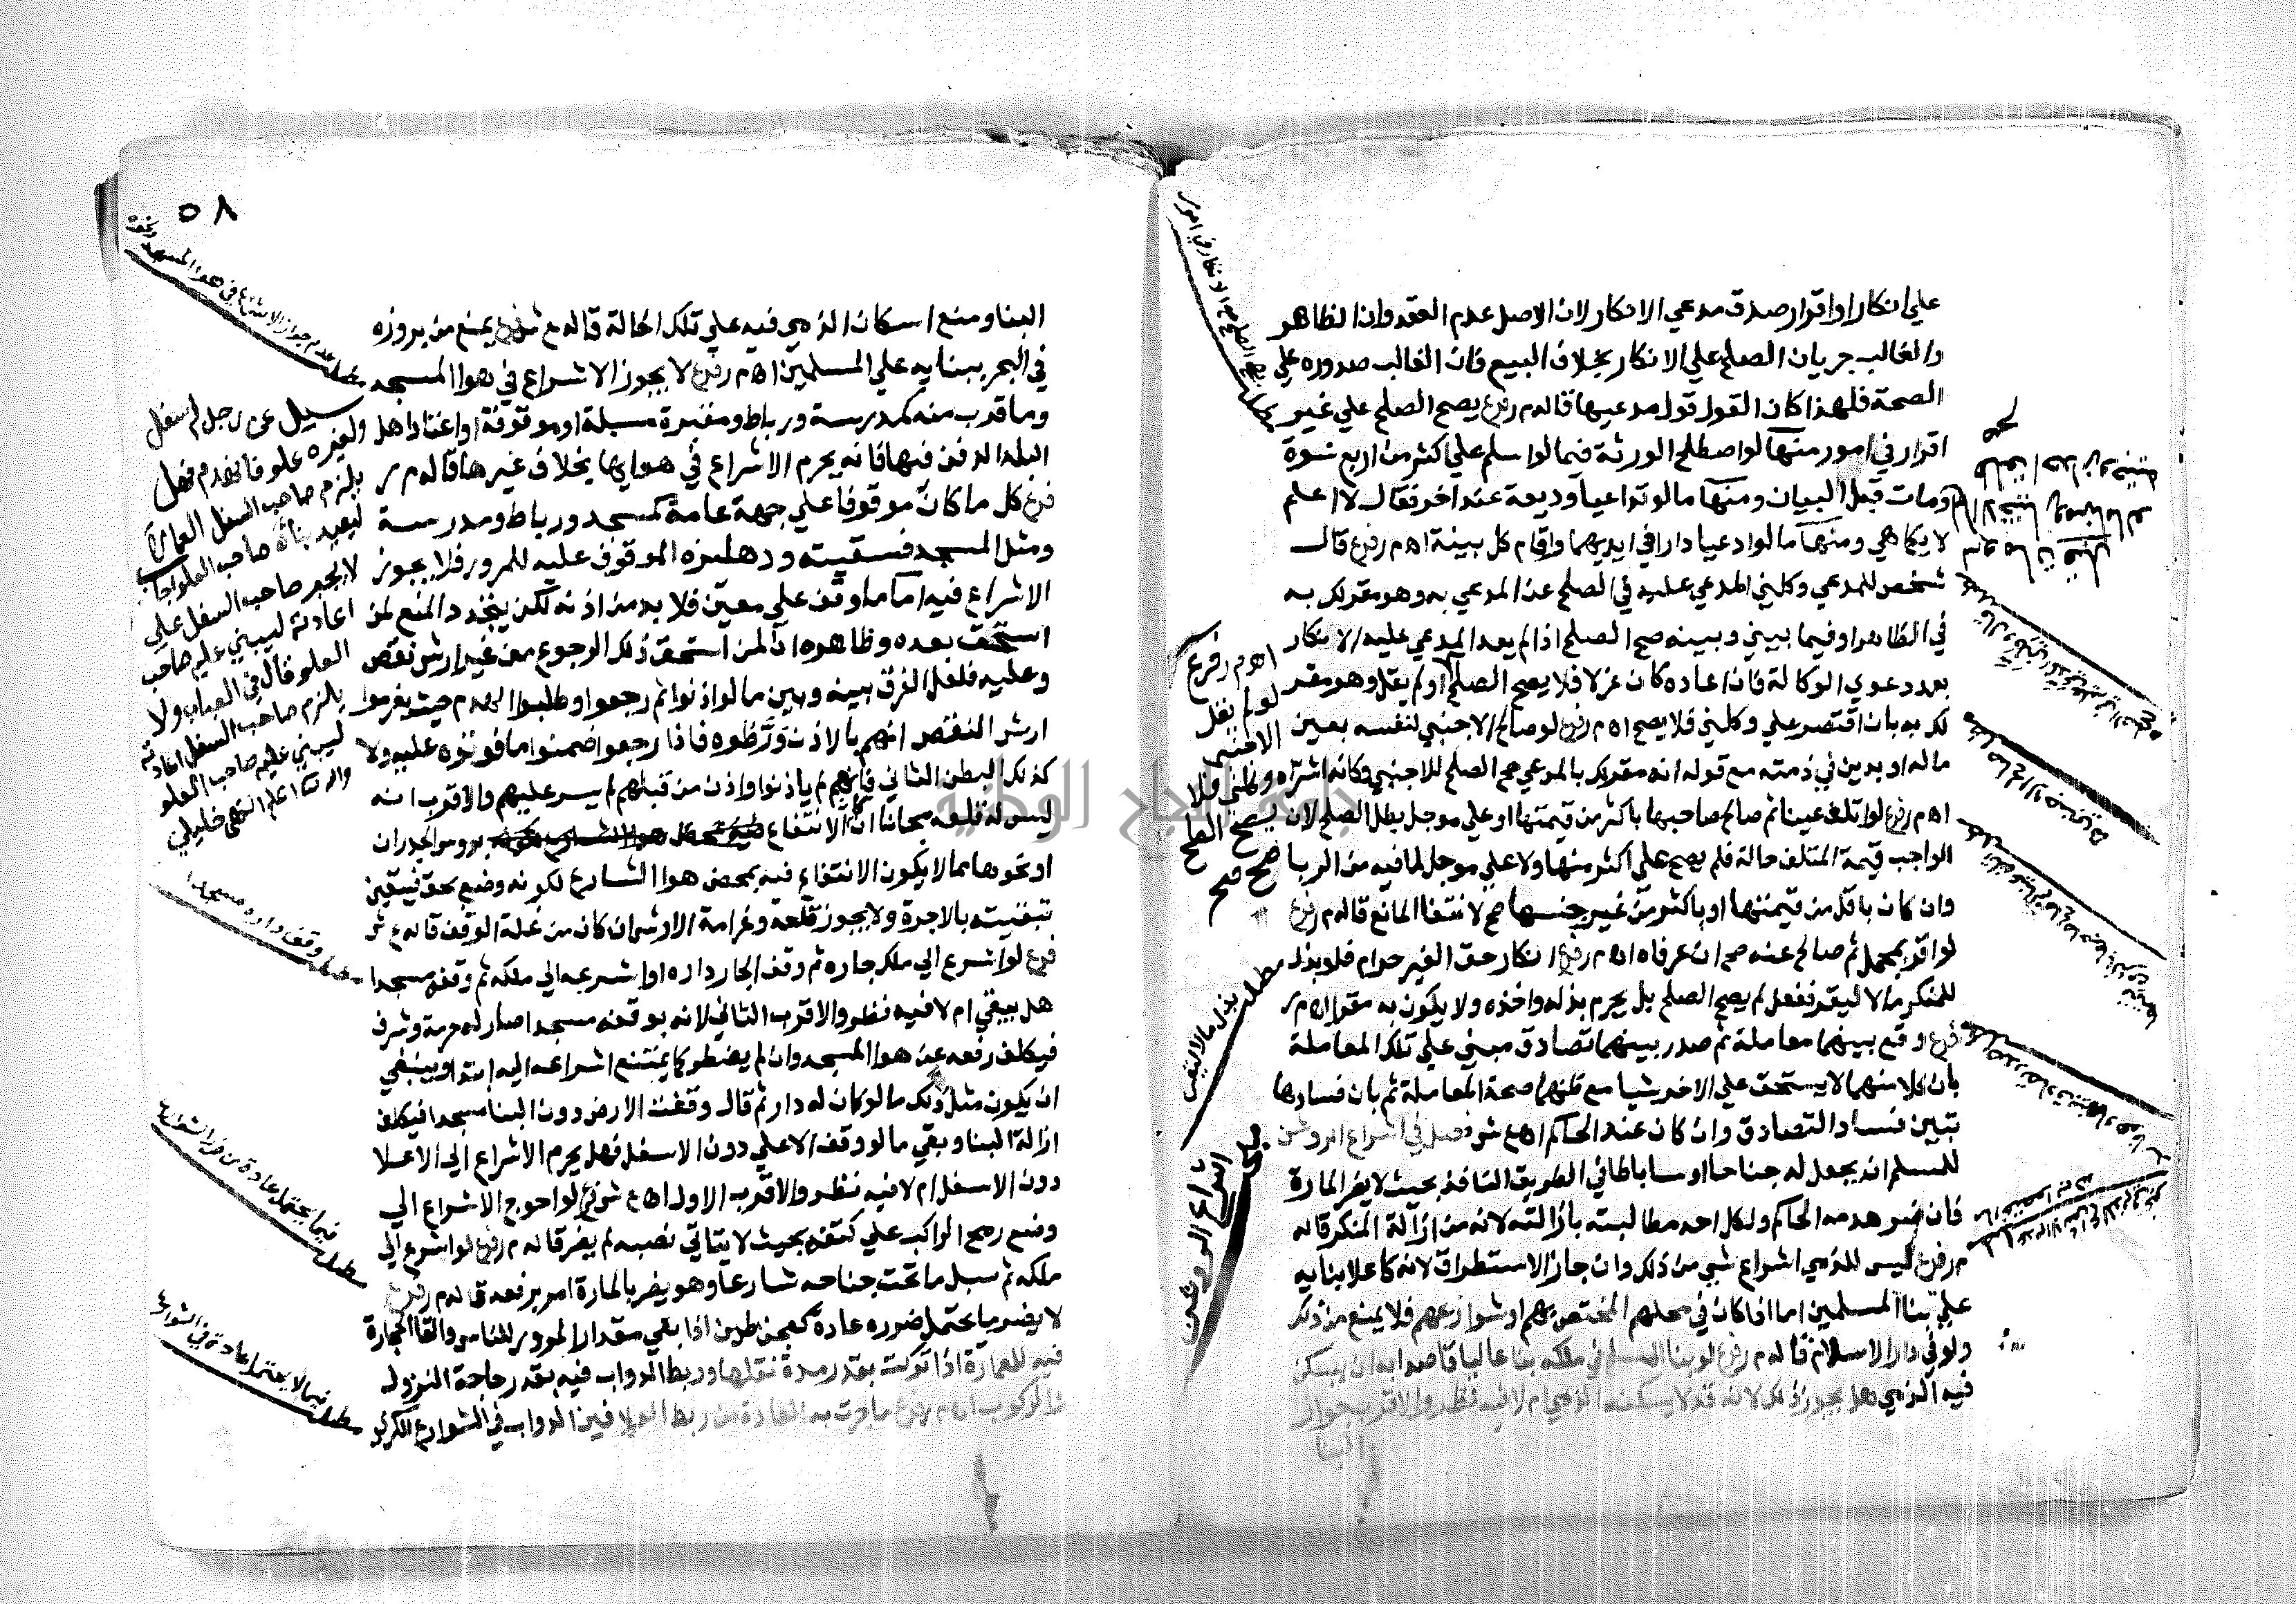 علي انكار او اقرار صدق مدعي الانكار لان الاصل عدم العقد وان الظاهر
والغالب جريان الصلح علي الانكار بخلاف البيع فان الغالب صدوره علي
الصحة فلهذا كان القول قول مدعيها قاله م ر فرع يصح الصلح علي غير
اقرار في امور منها لو اصطلح الورثة فيما لو اسلم علي اكثر من اربع نسوة
ومات قبل البيان ومنها ما لو تداعيا وديعة عند اخر فقال لا اعلم
لايكما هي ومنها ما لو ادعيا دارا في ايديهما واقام كل بينة اه م ر فرع قال
شخص للمدعي وكلني المدعي عليه في الصلح عن المدعي به وهو مقر لك به
في الظاهر او فيما بيني وبينه صح الصلح اذا لم يعد المدعي عليه الانكار
بعد دعوي الوكالة فان اعاده كان عزلا فلا يصح الصلح او لم يقل وهو مقر
لك به بان اقتصر علي وكلني فلا يصح اه م ر فرع لو صالح الاجنبي لنفسه بعين
ماله او بدين في ذمته مع قوله انه مقر لك بالمدعي صح الصلح للاجنبي وكانه اشتراه
اه م ر فرع لو اتلف عينا ثم صالح صاحبها باكثر من قيمتها او علي موجل بطل الصلح لان
الواجب قيمة المتلف حالة فلم يصح علي اكثر منها ولا علي موجل لما فيه من الربا
وان كان باقل من قيمتها او باكثر من غير جنسها صح لانتفا المانع قاله م ر فرع
لو اقر بمجمل ثم صالح عنه صح ان عرفاه اه م ر فرع انكار حق الغير حرام فلو بذل
للمنكر مالا ليقر ففعل لم يصح الصلح بل يحرم بذله واخذه ولا يكون به مقرا اه م ر
فرع وقع بينهما معاملة ثم صدر بينهما تصادق مبني علي تلك المعاملة
بان كلا منهما لا يستحق علي الاخر شيا مع ظنهما صحة المعاملة ثم بان فسادها
تبين فساد التصادق وان كان عند الحاكم اه ع ش فصل في اشراع الروشن
للمسلم ان يجعل له جناحا او ساباطا في الطريق النافذ بحيث لا يضر المارة
فان ضر هدمه الحاكم ولكل احد مطالبته بازالته لانه من ازالة المنكر قاله
م ر فرع ليس للذمي اشراع شي من ذلك وان جاز الاستطراق لانه كاعلا بنايه
علي بنا المسلمين اما اذا كان في محلهم المختص بهم او شوارعهم فلا يمنع من ذلك
ولو في دار الاسلام قاله م ر فرع لو بنا المسلم في ملكه بنا عاليا قاصدا به ان يسكن
فيه الذمي هل يجوز ذلك لانه قد لا يسكنه الذمي ام لا فيه نظر والاقرب جواز
البنا
اه م ر فرع
لو لم يقل
الاجنبي
وكلني فلا
يصح الصلح
صح صح
مطلب بذل مالا ليقر
اشراع الروشن
٥٨
البنا ومنع اسكان الذمي فيه علي تلك الحالة قاله ع ش فرع يمنع من بروزه
في البحر ببنايه علي المسلمين اه م ر فرع لا يجوز الاشراع في هوا المسجد
وما قرب منه كمدرسة ورباط ومقبرة مسبلة او موقوفة او اعتاد اهل
البلد الدفن فيها فانه يحرم الاشراع في هوايها بخلاف غيرها قاله م ر
فرع كل ما كان موقوفا علي جهة عامة كمسجد ورباط ومدرسة
ومثل المسجد فسقيته ودهليزه الموقوف عليه للمرور فلا يجوز
الاشراع فيه اما ما وقف علي معين فلا بد من اذنه لكن يتجدد المنع لمن
استحق بعده وظاهره ان لمن استحق ذلك الرجوع من غير ارش نقص
وعليه فلعل الفرق بينه وبين ما لو اذنوا ثم رجعوا وطلبوا الهدم حيث يغرموا
ارش النقص انهم بالاذن ورطوه فاذا رجعوا ضمنوا ما فوتوه عليه ولا
كذلك البطن الثاني فانهم لم ياذنوا واذن من قبلهم لم يسر عليهم والاقرب انه
ليس له قلعه مجانا لان الانتفاع بروس الجدران
او نحوها مما لا يكون الانتفاع فيه بمحض هوا الشارع لكونه وضع بحق فيتعين
تبقيته بالاجرة ولا يجوز قلعه وغرامة الارش ان كان من غلة الوقف قاله ع ش
فرع لو اشرع الي ملك جاره ثم وقف الجار داره او اشرعه الي ملكه ثم وقفه مسجدا
هل يبقي ام لا فيه نظر والاقرب الثاني لانه بوقفه مسجدا صار له حرمة وشرف
فيكلف رفعه عن هوا المسجد وان لم يضر كما يمتنع اشراعه اليه ابتدا وينبغي
ان يكون مثل ذلك ما لو كان له دار ثم قال وقفت الارض دون البنا مسجدا فيكلف
ازالة البنا وبقي ما لو وقف الاعلي دون الاسفل فهل يحرم الاشراع الي الاعلا
دون الاسفل ام لا فيه نظر والاقرب الاول اه ع ش فرع لو احوج الاشراع الي
وضع رمح الراكب علي كتفه بحيث لا يتاتي نصبه لم يضر قاله م ر فرع لو اشرع الي
ملكه ثم سبل ما تحت جناحه شارعا وهو يضر بالمارة امر برفعه قاله م ر فرع
لا يضر ما يحتمل ضرره عادة كعجن طين اذا بقي مقدار المرور للناس والقا الحجارة
فيه للعمارة اذا تركت بقدر مدة نقلها وربط الدواب فيه بقدر حاجة النزول
والركوب اه م ر فرع ما جرت به العادة من ربط العلافين الدواب في الشوارع للكرا
مطلب عدم جواز الاشراع في هوا المسجد ونحوه
سيل عن رجل له اسفل
ولغيره علو فانهدم فهل
يلزم صاحب السفل العمارة
ليعيد بناه صاحب العلو اجاب
لا يجبر صاحب السفل علي
اعادته ليبني عليه صاحب
العلو قال في العباب ولا
يلزم صاحب السفل اعادته
ليبني عليه صاحب العلو
والله اعلم انتهي خليلي
مطلب وقف داره مسجدا
مطلب فيما يحتمل عادة من ضرر الشوارع
مطلب فيما لا يحتمل عادة في الشوارع
جامعة النجاح الوطنية